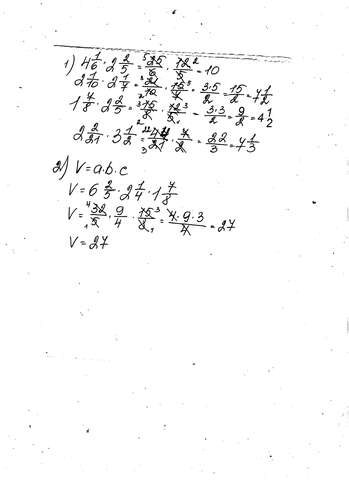 1) 4 1/6 · 2 2/5 = 25/6 · 12/5 = 10
2 1/10 · 2 1/7 = 21/10 · 15/7 = 3·5/2 = 15/2 = 7 1/2
1 7/8 · 2 2/5 = 15/8 · 12/5 = 3·3/2 = 9/2 = 4 1/2
2 2/21 · 3 1/2 = 44/21 · 7/2 = 22/3 = 7 1/3
2) V = a·b·c
V = 6 2/5 · 2 1/4 · 1 7/8
V = 32/5 · 9/4 · 15/8 = 4·9·3/4 = 27
V = 27